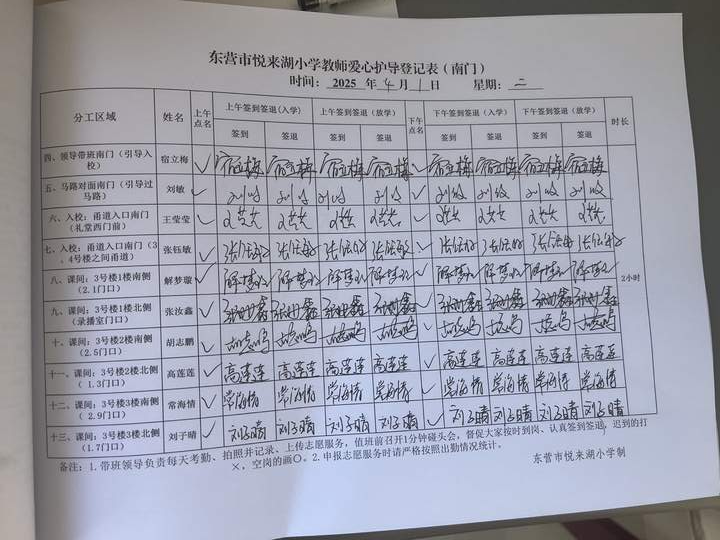 东营市悦来湖小学教师爱心护导登记表（南门）
时间： 2025 年 4 月 1 日 星期： 二
分工区域 姓名 上午点名 上午签到签退(入学) 上午签到签退（放学） 下午点名 下午签到签退（入学） 下午签到签退（放学） 时长
签到 签退 签到 签退 签到 签退 签到 签退
四、领导带班南门（引导入校） 宿立梅 ✓ 宿立梅 宿立梅 宿立梅 宿立梅 ✓ 宿立梅 宿立梅 宿立梅 宿立梅
五、马路对面南门（引导过马路） 刘敏 ✓ 刘敏 刘敏 刘敏 刘敏 ✓ 刘敏 刘敏 刘敏 刘敏
六、入校：甬道入口南门（礼堂西门前） 王莹莹 ✓ ✓
七、入校：甬道入口南门（3、4号楼之间甬道） 张钰敏 ✓ 张钰敏 张钰敏 张钰敏 张钰敏 ✓ 张钰敏 张钰敏 张钰敏 张钰敏
八、课间：3号楼1楼南侧（2.1门口） 解梦璇 ✓ ✓ 2小时
九、课间：3号楼1楼北侧（录播室门口） 张汝鑫 ✓ 张汝鑫 张汝鑫 张汝鑫 张汝鑫 ✓ 张汝鑫 张汝鑫 张汝鑫 张汝鑫
十、课间：3号楼2楼南侧（2.5门口） 胡志鹏 ✓ 胡志鹏 胡志鹏 胡志鹏 胡志鹏 ✓ 胡志鹏 胡志鹏 胡志鹏 胡志鹏
十一、课间：3号楼2楼北侧（ 1.3门口） 高莲莲 ✓ 高莲莲 高莲莲 高莲莲 高莲莲 ✓ 高莲莲 高莲莲 高莲莲 高莲莲
十二、课间：3号楼3楼南侧（ 2.9门口） 常海情 ✓ 常海情 常海情 常海情 常海情 ✓ 常海情 常海情 常海情 常海情
十三、课间：3号楼3楼北侧（1.7门口） 刘子晴 ✓ 刘子晴 刘子晴 刘子晴 刘子晴 ✓ 刘子晴 刘子晴 刘子晴 刘子晴
备注：1.带班领导负责每天考勤、拍照并记录、上传志愿服务，值班前召开1分钟碰头会，督促大家按时到岗、认真签到签退，迟到的打
×，空岗的画〇。2.申报志愿服务时请严格按照出勤情况统计。
东营市悦来湖小学制